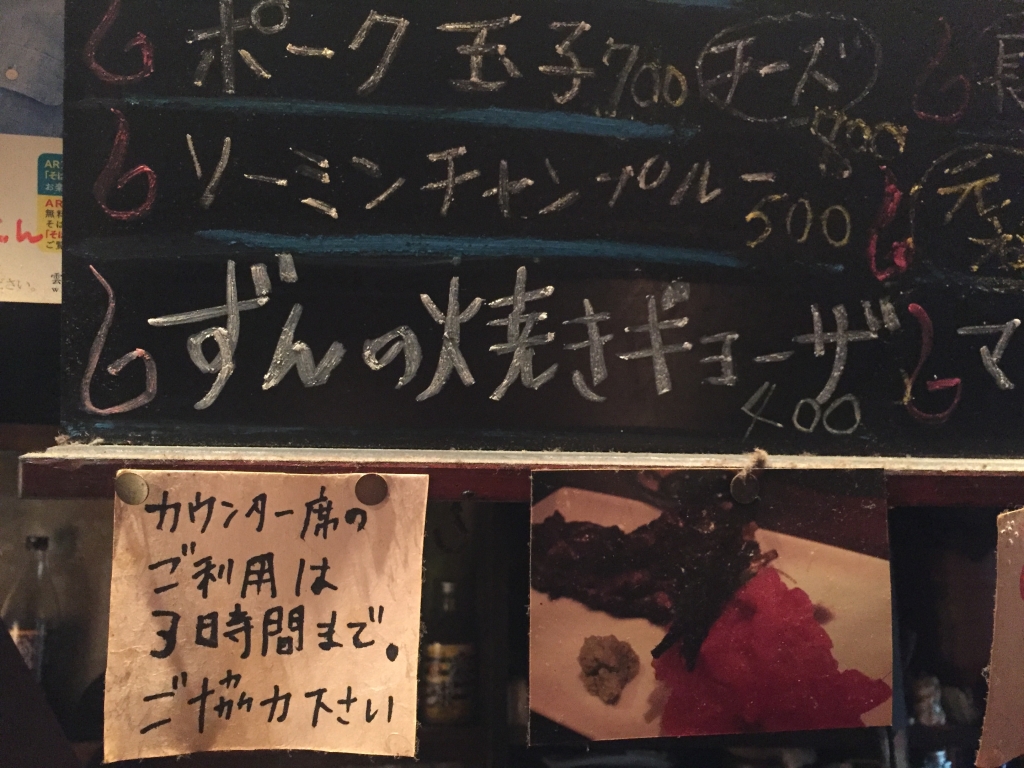 ポーク玉子700 チーズ 800
ソーミンチャンプルー 500
ずんの焼きギョーザ 400
元
マ
カウンター席の
ご利用は
3日時間まで。
ご協力下さい